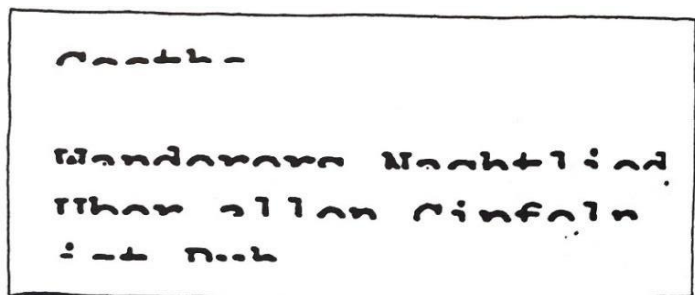 Goethe
Wanderers Nachtlied
Über allen Gipfeln
ist Ruh